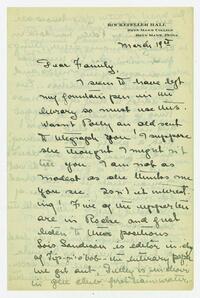 ROCKEFELLER HALL
BRYN MAWR COLLEGE
BRYN MAWR, PENNA.
March 19th
Dear Family,
I seem to have left
my fountain pen in the
library so must use this.
Wasn't Polly an old
to telegraph you! I suppose
she thought I might not
tell you. I am not as
modest as she thinks me
you see. Isn't it interest-
ing! Five of the
are in Rocke and just
listen to these positions
Lois Sandison is editor in
of Tip-o'Bob - the literary paper
we get out,
in glee club,